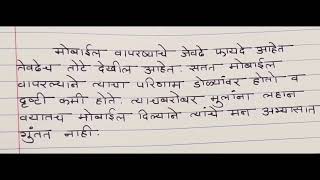 मोबाईल वापरण्याचे जेवढे फायदे आहेत
तेवढेच तोटे देखील आहेत. सतत मोबाईल
वापरल्याने त्याचा परिणाम डोळ्यांवर होतो व
दृष्टी कमी होते. त्याचबरोबर मुलांना लहान
वयातच मोबाईल दिल्याने त्यांचे मन अभ्यासात
गुंतत नाही.